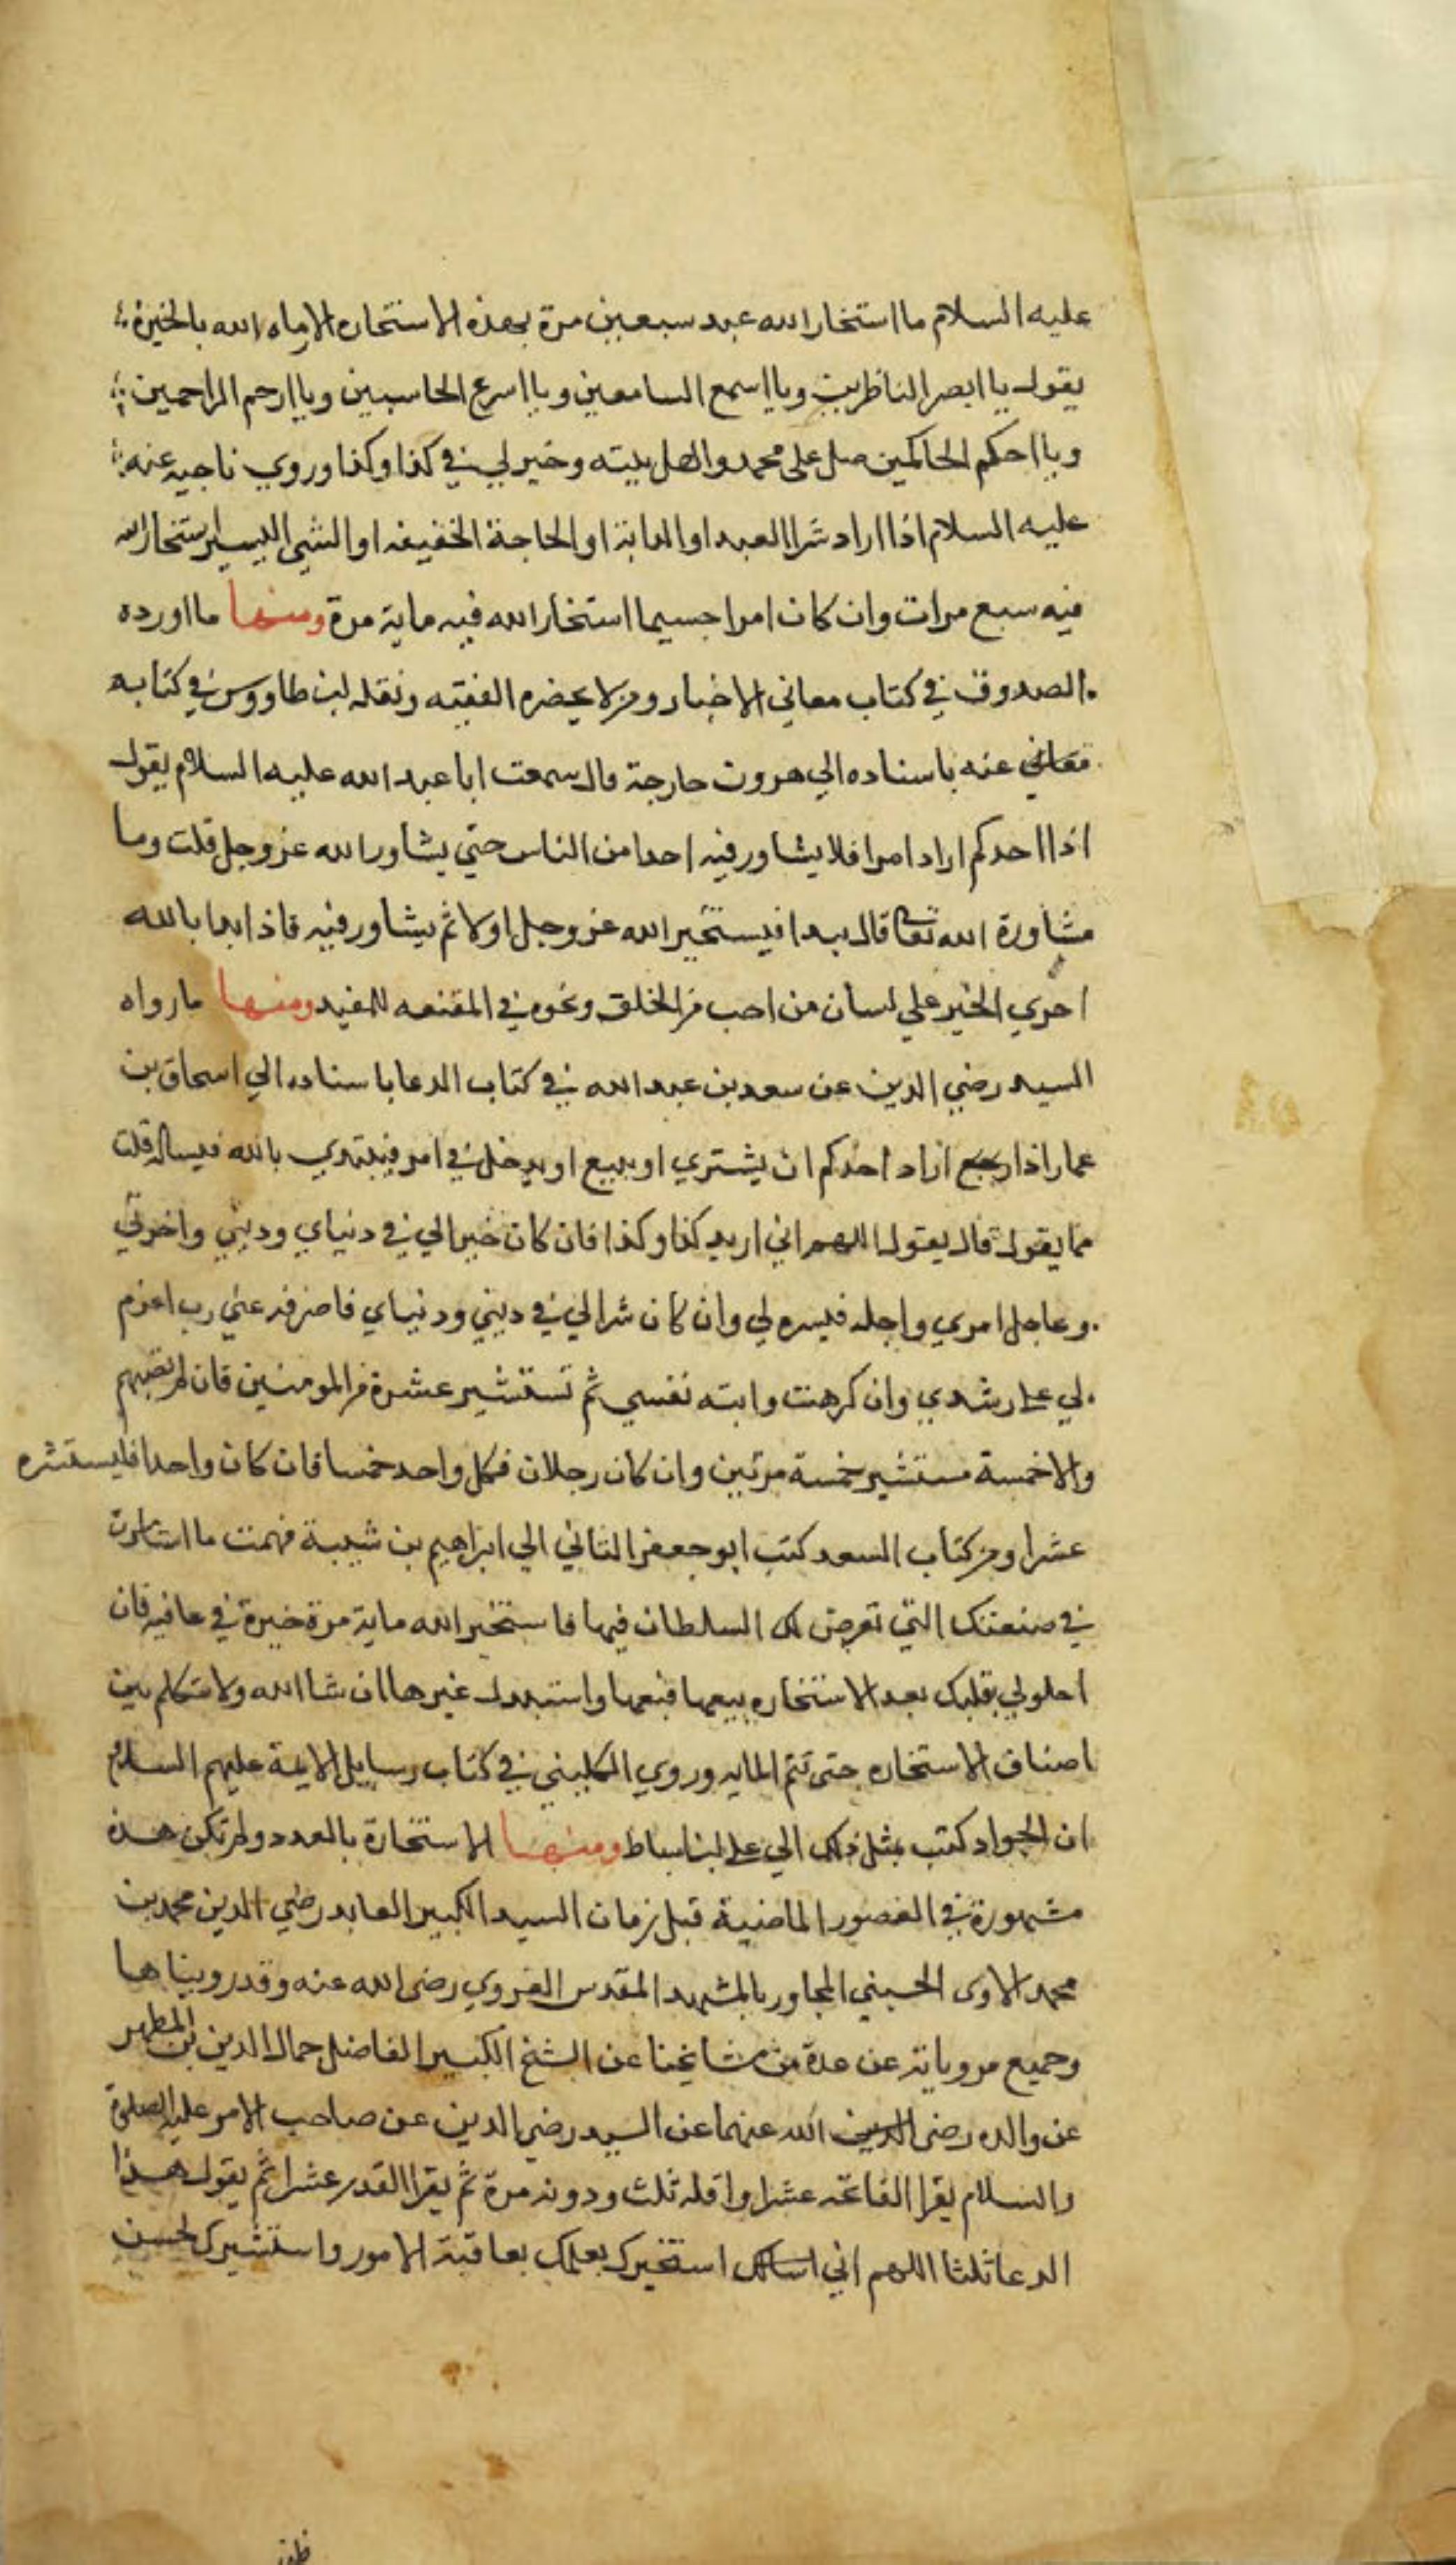 عليه السلام ما استخار الله عبد سبعين مرة بهذه الاستخاره الا رماه الله بالخيرة
يقول يا ابصر الناظرين ويا اسمع السامعين ويا اسرع الحاسبين ويا ارحم الراحمين
ويا احكم الحاكمين صل على محمد واهل بيته وخير لي في كذا وكذا وروي ناجيه عنه
عليه السلام اذا اراد شرا العبد او الدابة او الحاجة الخفيفه او الشي اليسير استخار الله
فيه سبع مرات وان كان امرا جسيما استخار الله فيه ماية مرة ومنها ما اورده
الصدوق في كتاب معاني الاخبار ومن لا يحضره الفقيه ونقله ابن طاووس في كتابه
معاني عنه باسناده الي هرون خارجة قال سمعت ابا عبد الله عليه السلام يقول
اذا احدكم اراد امرا فلا يشاور فيه احدا من الناس حتي يشاور الله عز وجل قلت وما
مشاورة الله تعا قال يبدا فيستخير الله عز وجل اولا ثم يشاور فيه فاذا بدا بالله
اجري الخير علي لسان من احب من الخلق ونحوه في المقنعه للمفيد ومنها ما رواه
السيد رضي الدين عن سعد بن عبد الله في كتاب الدعا باسناده الي اسحاق بن
عمار اذا اراد احدكم ان يشتري او يبيع او يدخل في امر فيبتدي بالله فيساله قلت
فما يقول قال يقول اللهم اني اريد كذا وكذا فان كان خيرا لي في دنياي وديني واخرتي
وعاجل امري واجله فيسره لي وان كان شرا لي في ديني ودنياي فاصرفه عني رب اعزم
لي علي رشدي وان كرهت وابته نفسي ثم تستشير عشرة من المومنين فان لم تصبهم
والا خمسة مستشير خمسة مرتين وان كان رجلان فكل واحد خمسا فان كان واحدا فليستشره
عشرا ومن كتاب السعد كتب ابو جعفر الثاني الي ابراهيم بن شيبة فهمت ما استامرت
في ضيعتك التي تعرض لك السلطان فيها فاستخير الله ماية مرة خيرة في عافيه فان
احلولي بقلبك بعد الاستخاره بيعها فبعها واستبدل غيرها ان شا الله ولا متكلم بين
اصناف الاستخاره حتى تتم المايه وروي الكليني في كتاب رسايل الايمة عليهم السلام
ان الجواد كتب بمثل ذلك الي علي ابن اسباط ومنها الاستخارة بالعدد ولم تكن هذه
مشهورة في العصور الماضية قبل زمان السيد الكبير العابد رضي الدين محمد بن
محمد الاوى الحسيني المجاور بالمشهد المقدس الغروي رضى الله عنه وقد رويناها
وجميع مروياته عن عدة من مشايخنا عن الشيخ الكبير الفاضل جمال الدين بن المطهر
عن والده رضى الدين الله عنهما عن السيد رضي الدين عن صاحب الامر عليه الصلوة
والسلام يقرا الفاتحه عشرا واقله ثلث ودونه مرة ثم يقرا القدر عشرا ثم يقول هذا
الدعا ثلثا اللهم اني اسالك استخيرك بعلمك بعاقبة الامور واستشيرك لحسن
ظني